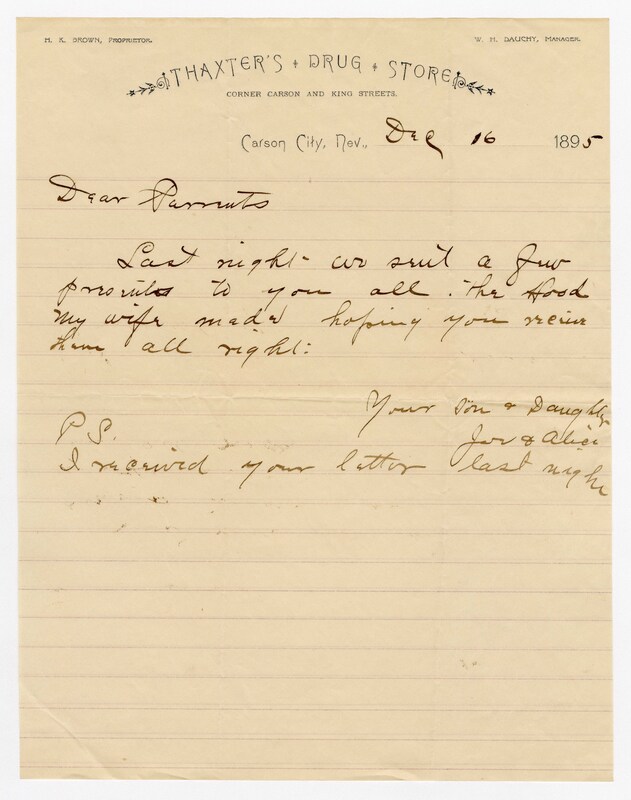 H. K. BROWN, PROPRIETOR.
W. H. DAUCHY, MANAGER.
THAXTER'S DRUG STORE
CORNER CARSON AND KING STREETS.
Carson City, Nev., Dec 16 1895
Dear Parrents
Last night we sent a few
presents to you all. the Hood
my wife made hoping you recive
them all right:
Your Son & Daughter
Joe & Alice
P S.
I received your letter last night